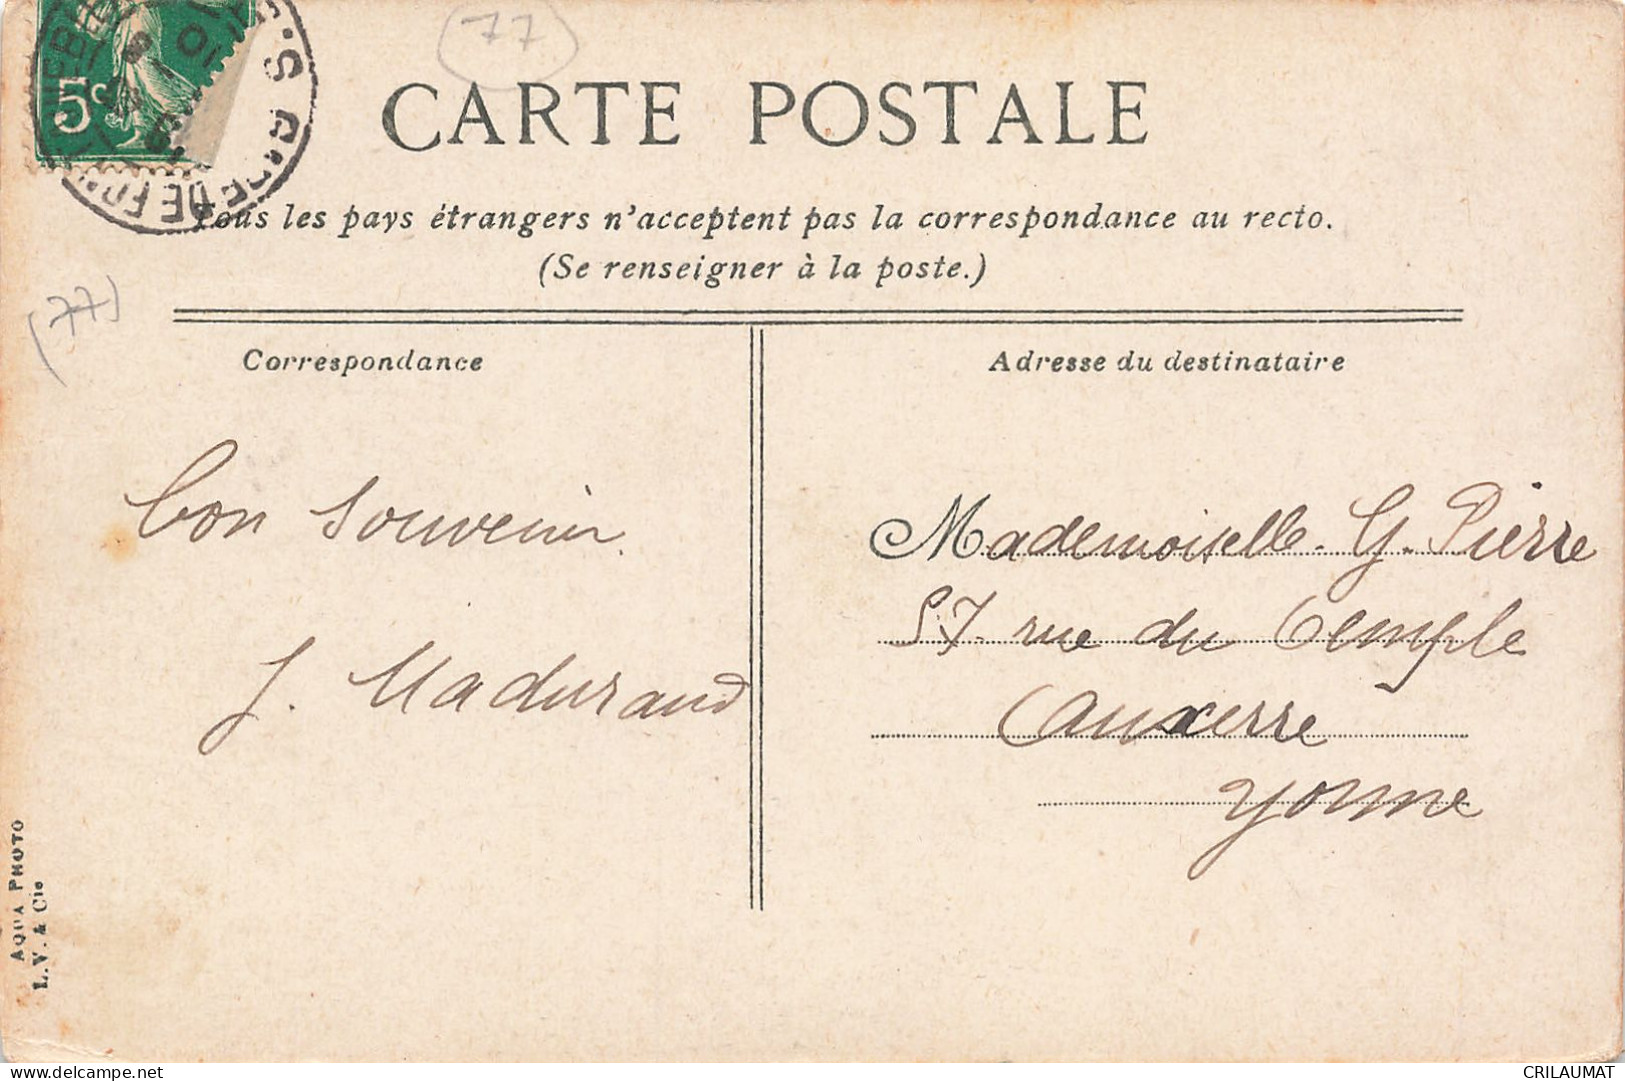 77
5c
CARTE POSTALE
Tous les pays étrangers n'acceptent pas la correspondance au recto.
(Se renseigner à la poste.)
(77)
Correspondance
Adresse du destinataire
Bon Souvenir.
J. Madurand
Mademoiselle G. Pierre
57 rue du Temple
Auxerre
Yonne
AQUA PHOTO
L.V. & Cie
delcampe.net
CRILAUMAT